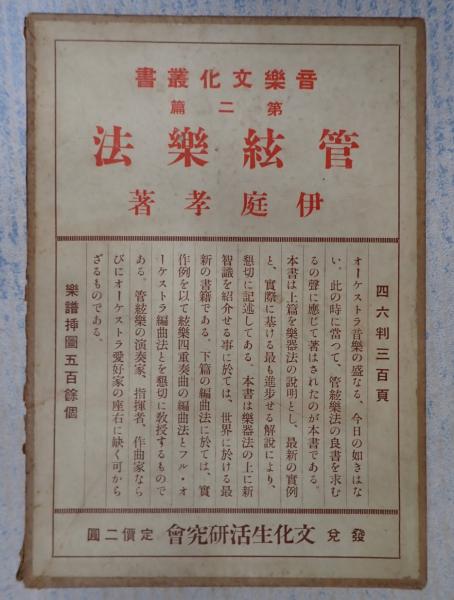 音樂文化叢書
第二篇
管絃樂法
伊庭孝著
四六判三百頁
オーケストラ音樂の盛なる、今日の如きはな
い。此の時に當つて、管絃樂法の良書を求む
るの聲に應じて著はされたのが本書である。
本書は上篇を樂器法の說明とし、最新の實例
と、實際に基ける最も進步せる解說により、
懇切に記述してある。本書は樂器法の上に新
智識を紹介せる事に於ては、世界に於ける最
新の書籍である。下篇の編曲法に於ては、實
作例を以て絃樂四重奏曲の編曲法とフル・オ
ーケストラ編曲法とを懇切に敎授するもので
ある。管絃樂の演奏家、指揮者、作曲家なら
びにオーケストラ愛好家の座右に缺く可から
ざるものである。
樂譜揷圖五百餘個
發兌 文化生活硏究會 定價二圓